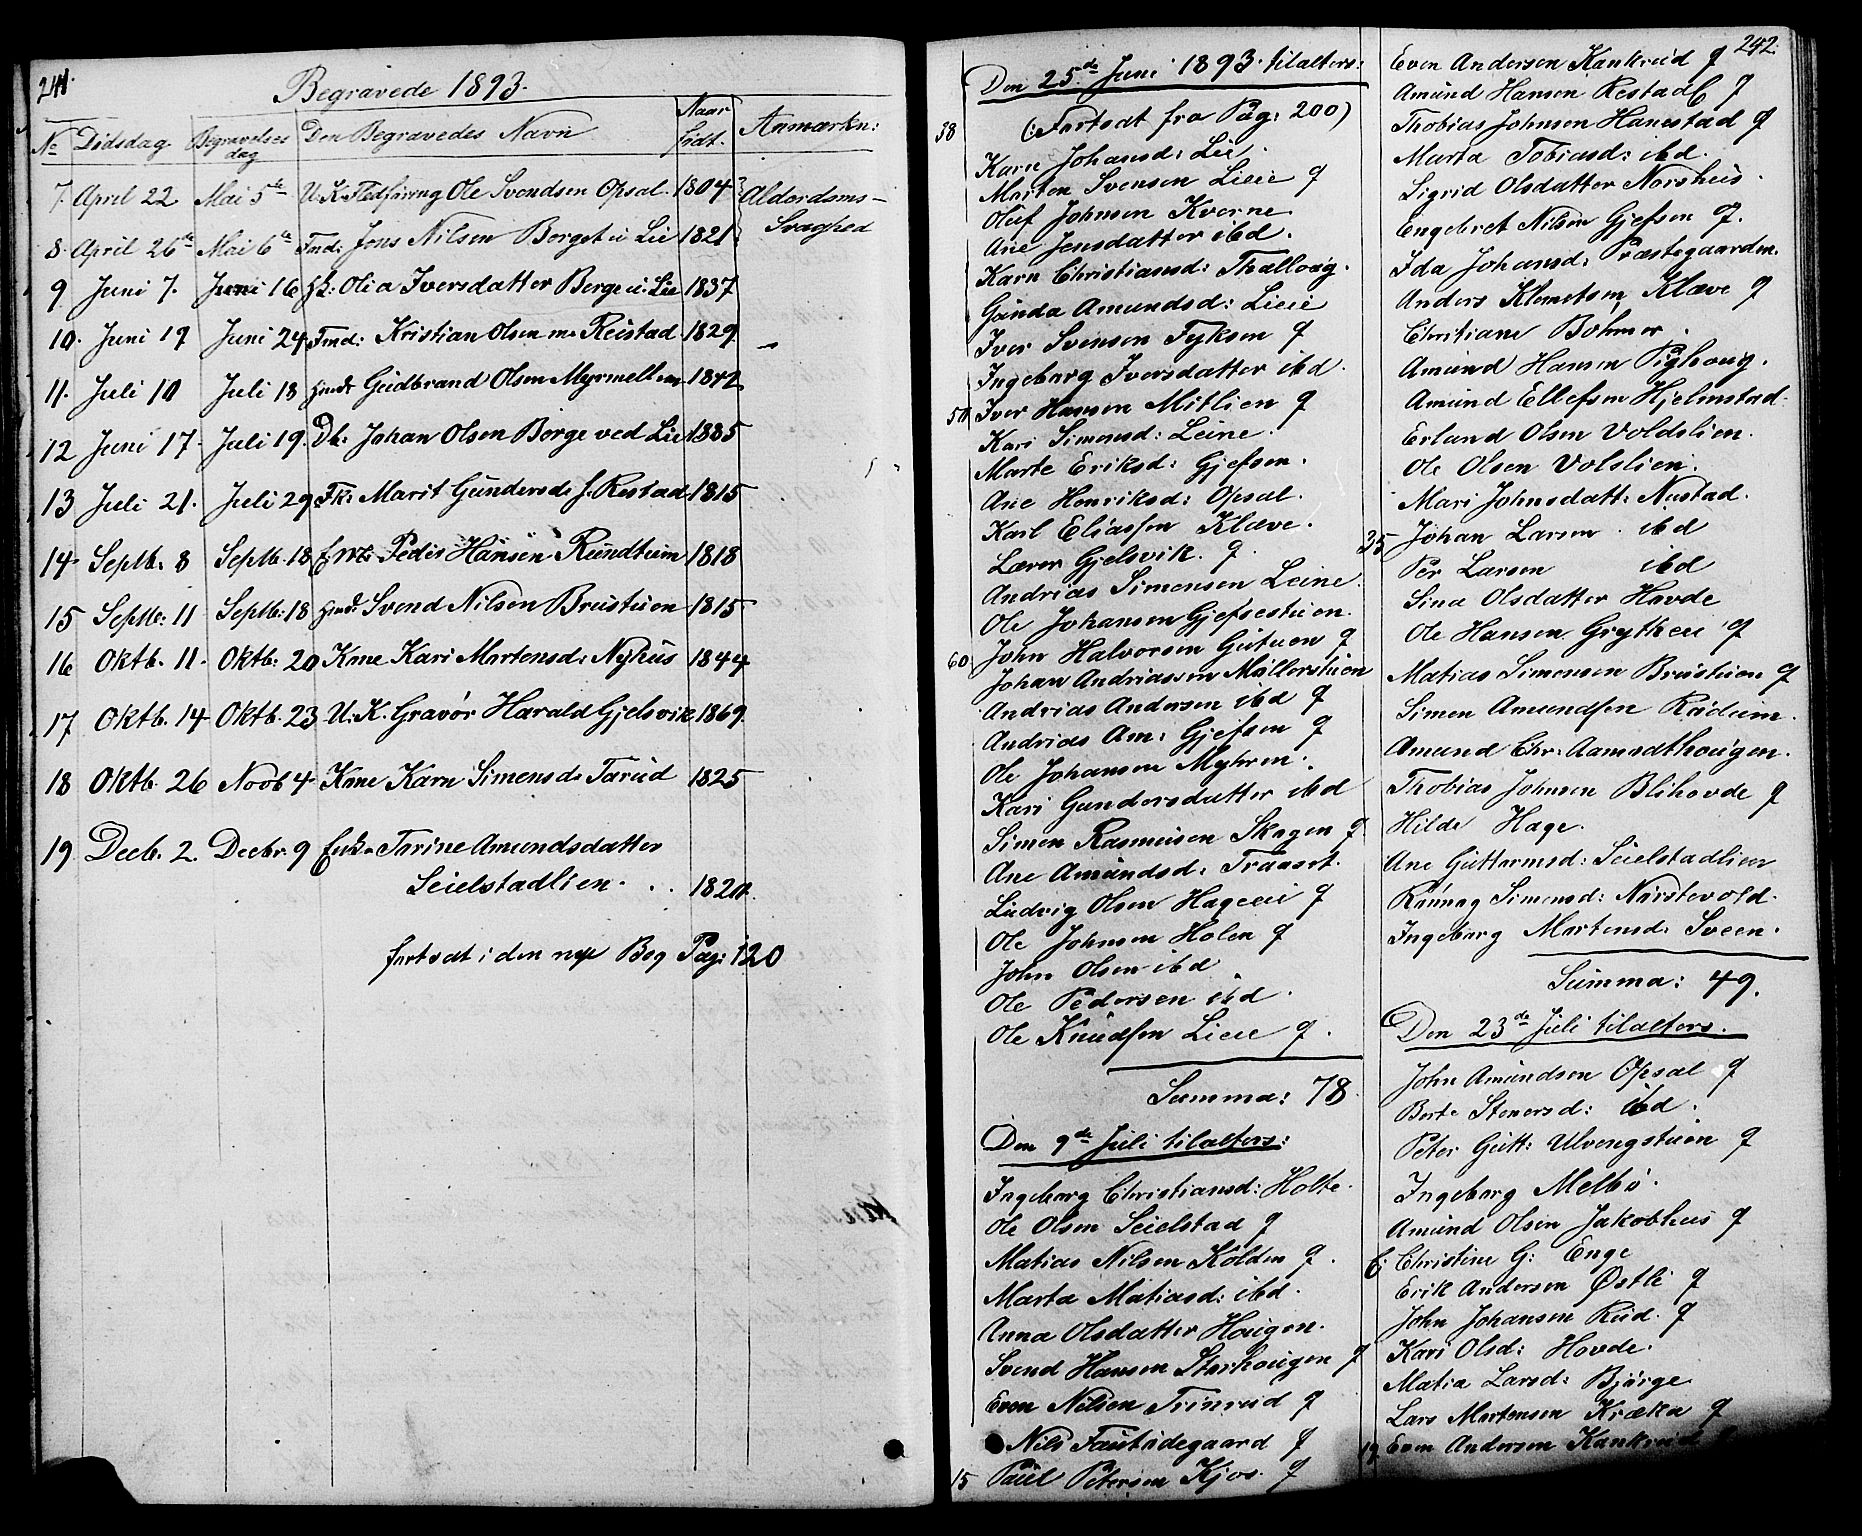 241.
Begravede 1893.
No Dödsdag. Begravelses dag Den Begravedes Navn Naar Födt. Anmærkn:
7. April 22 Mai 5te U.K. Ole Svendsen Opsal. 1804 Alderdoms-
8. April 26de Mai 6te Fmd: Jons Nilsen Borget u Lie 1821 Svaghed
9 Juni 7. Juni 16 Olia Iversdatter Berge u. Lie 1837
10. Juni 19 Juni 24 Fmd: Kristian Olsen Reistad 1829
11. Juli 10 Juli 18 Gudbrand Olsen Myrmellem 1842
12 Juni 17 Juli 19. Db: Johan Olsen Börge ved Lie 1885
13 Juli 21. Juli 29 Fk: Marit Gundersd: Restad 1815
14 Septb. 8 Septb. 18 Peder Hansen Rundtum 1818
15 Septb: 11 Septb: 18 Svend Nilsen Brustuen 1815
16 Oktb. 11. Oktb: 20 Kone Kari Mortensd: Nyhus 1844
17 Oktb. 14 Oktb. 23 U.K. Gravör Harald Gjelsvik 1869
18 Oktb. 26 Novb 4 Kone Karn Simensd: Tarud 1825
19. Decb. 2. Decbr. 9 Enke Torine Amundsdatter
Seielstadlien. . . 1820.
fortsat i den nye Bog Pag: 120
Den 25de Juni 1893 tilalters:
38 (:Fortsat fra Pag: 200)
Karn Johansd: Lie.
Morten Svensen Lieie g
Oluf Johnsen Kverne.
Ane Jensdatter ibd.
Karn Christiansd: Thalloug.
Gunda Amundsd: Lieie
Iver Svensen Fyksen g
Ingeborg Iversdatter ibd.
50 Iver Hansen Mitlien g
Kari Simensd: Leine.
Marte Eriksd: Gjefsen.
Ane Henriksd: Opsal.
Karl Eliassen Klæve.
Lærer Gjelsvik. g
Andrias Simensen Leine.
Ole Johansen Gjefsestuen.
John Halvorsen Gutuen g
60 Johan Andriassen Möllerstuen
Andrias Andersen ibd g
Andrias Am: Gjefsen g
Ole Johansen Myhren.
Kari Gundersdatter ibd
Simen Rasmusen Skogen g
Ane Amundsd: Traaset.
Ludvig Olsen Hageeie g
Ole Johnsen Holen g
John Olsen ibd
Ole Pedersen ibd.
Ole Knudsen Lieie g.
Summa: 78
Den 9de Juli tilalters:
Ingeborg Christiansd: Holte.
Ole Olsen Seielstad g
Matias Nilsen Kolden g.
Marta Matiasd: ibd.
Anna Olsdatter Hougen.
Svend Hansen Storhougen g
Even Nilsen Trinrud g
Nils Faustadegaard g
15 Paul Petersen Kjos. g
242.
Even Andersen Kankrud g
Amund Hansen Restad g
Thobias Johnsen Hanestad g
Marta Tobiasd: ibd.
Sigrid Olsdatter Norshus.
Engebret Nilsen Gjefsen g.
Ida Johansd: Præstegaarden.
Anders Klemetsen Klæve g
Christiane Bohmer.
Amund Hansen Pighoug.
Amund Ellefsen Hjelmstad.
Erland Olsen Voldslien.
Ole Olsen Volslien.
Mari Johnsdatt: Nustad.
35 Johan Larsen ibd
Per Larsen ibd
Sina Olsdatter Hovde
Ole Hansen Grytheu g
Matias Simensen Brustuen g
Simen Amundsen Rudum.
Amund Chr: Aamodthougen.
Thobias Johnsen Blihovde g
Hilde Hage.
Ane Guttormsd: Seielstadlien
Rönnog Simensd: Norstevold.
Ingeborg Mortensd: Sveen.
Summa: 49.
Den 23de Juli tilalters.
John Amundsen Opsal g
Berte Stenersd: ibd.
Peter Gutt: Ulvengstuen g
Ingeborg Melbö.
Amund Olsen Jakobhus g
6. Christine G: Enge
Erik Andersen Østli g
John Johansen Rud. g
Kari Olsd: Hovde.
Matia Larsd: Bjørge
Lars Mortensen Kræka g
12 Even Andersen Kankrud